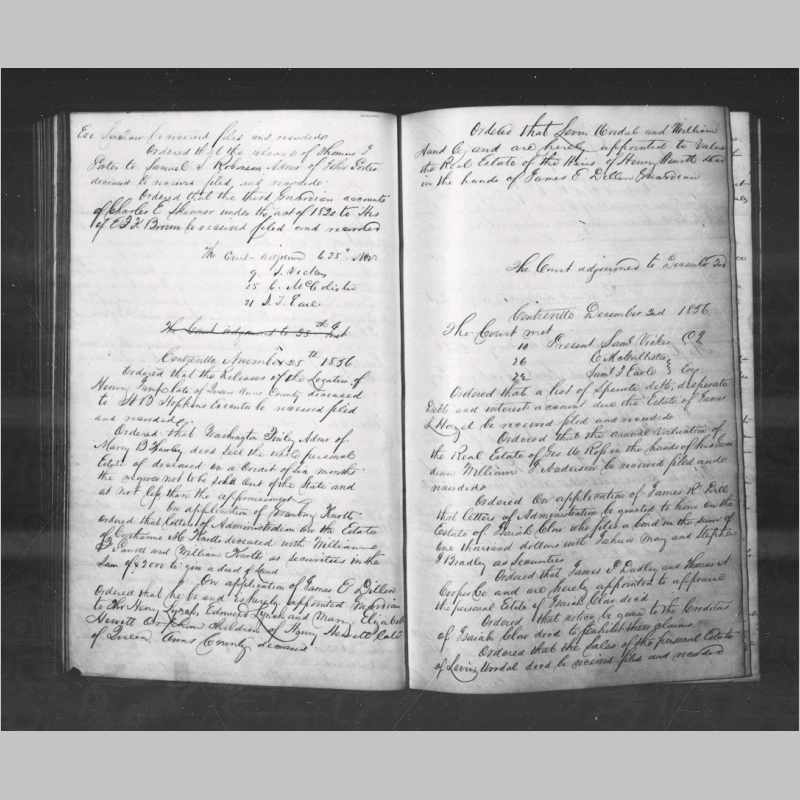 be received filed and recorded
Ordered that the release of Thomas J
Foster to Samuel J Robinson Admr of John Foster
deceased be received filed and recorded
Ordered that the third Guardian account
of Charles C Skinner under the act of 1820 to
of Brown be received filed and recorded
The Court adjourned to 25th Nov
9 S. Vickers
15 C. McColister
21 S. T. Earle
The Court adjourned to 25th Inst
Centreville November 25th 1856
Ordered that the Releases of the Legatees of
Henry late of Queen Anns County deceased
to W B Hopkins Executor be received filed
and recorded
Ordered that Washington Finley Admr of
Mary B Hawley decd sell the whole personal
Estate of deceased on a Credit of six months
the negroes not to be sold out of the State and
at not less than the appraisement
On application of Tranbury Knotts
Ordered that Letters of Administration on the Estate
of Catharine M Knotts deceased with William
and William Knotts as securities in the
Sum of $2000 to give a deed of bond
On application of James E Dillen
Ordered that he be and is hereby appointed Guardian
to Thos Henry Edmund and Mary Elizabeth
Hewitt Orphan Children of Henry Hewitt late
of Queen Anns County deceased
Ordered that Levin Wordal and William
Hand be and are hereby appointed to value
the Real Estate of the Heirs of Henry Hewitt
in the hands of James E Dillen Guardian
The Court adjourned to December 2nd
Centreville December 2nd 1856
The Court met
10 Present Saml Vickers C J
26 C. McCollister
22 Saml T Earle Esq
Ordered that a list of Sperate debts, desperate
Debts and interest account due the Estate of James
Hazel be received filed and recorded
Ordered that the annual valuation of
the Real Estate of Geo W Ross in the hands of his Guar
dian William J Anderson be received filed and
recorded
Ordered On application of James R Dill
that letters of Administration be granted to him on the
Estate of Isaiah Clow who files a bond in the sum of
One thousand dollars with May and Stephen
J Bradley as Securities
Ordered that James P Dudley and Thomas A
Cooper be and are hereby appointed to appraise
the personal Estate of Isaiah Clow decd
Ordered that notice be given to the Creditors
of Isaiah Clow decd to exhibit their claims
Ordered that the Sales of the personal Estate
of Levin Wordal decd be received filed and recorded